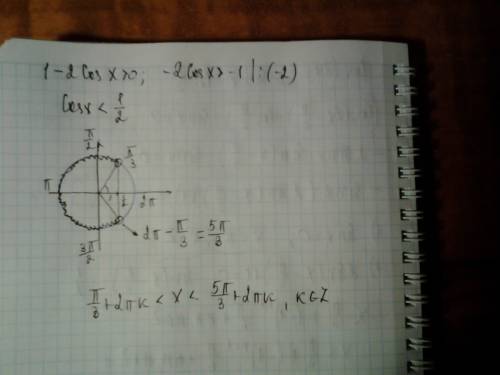 1 - 2 cos x > 0; -2 cos x > -1 | : (-2)
cos x < 1/2
π/2
π/3
π
2π
2π - π/3 = 5π/3
3π/2
π/3 + 2πk < x < 5π/3 + 2πk, k∈Z